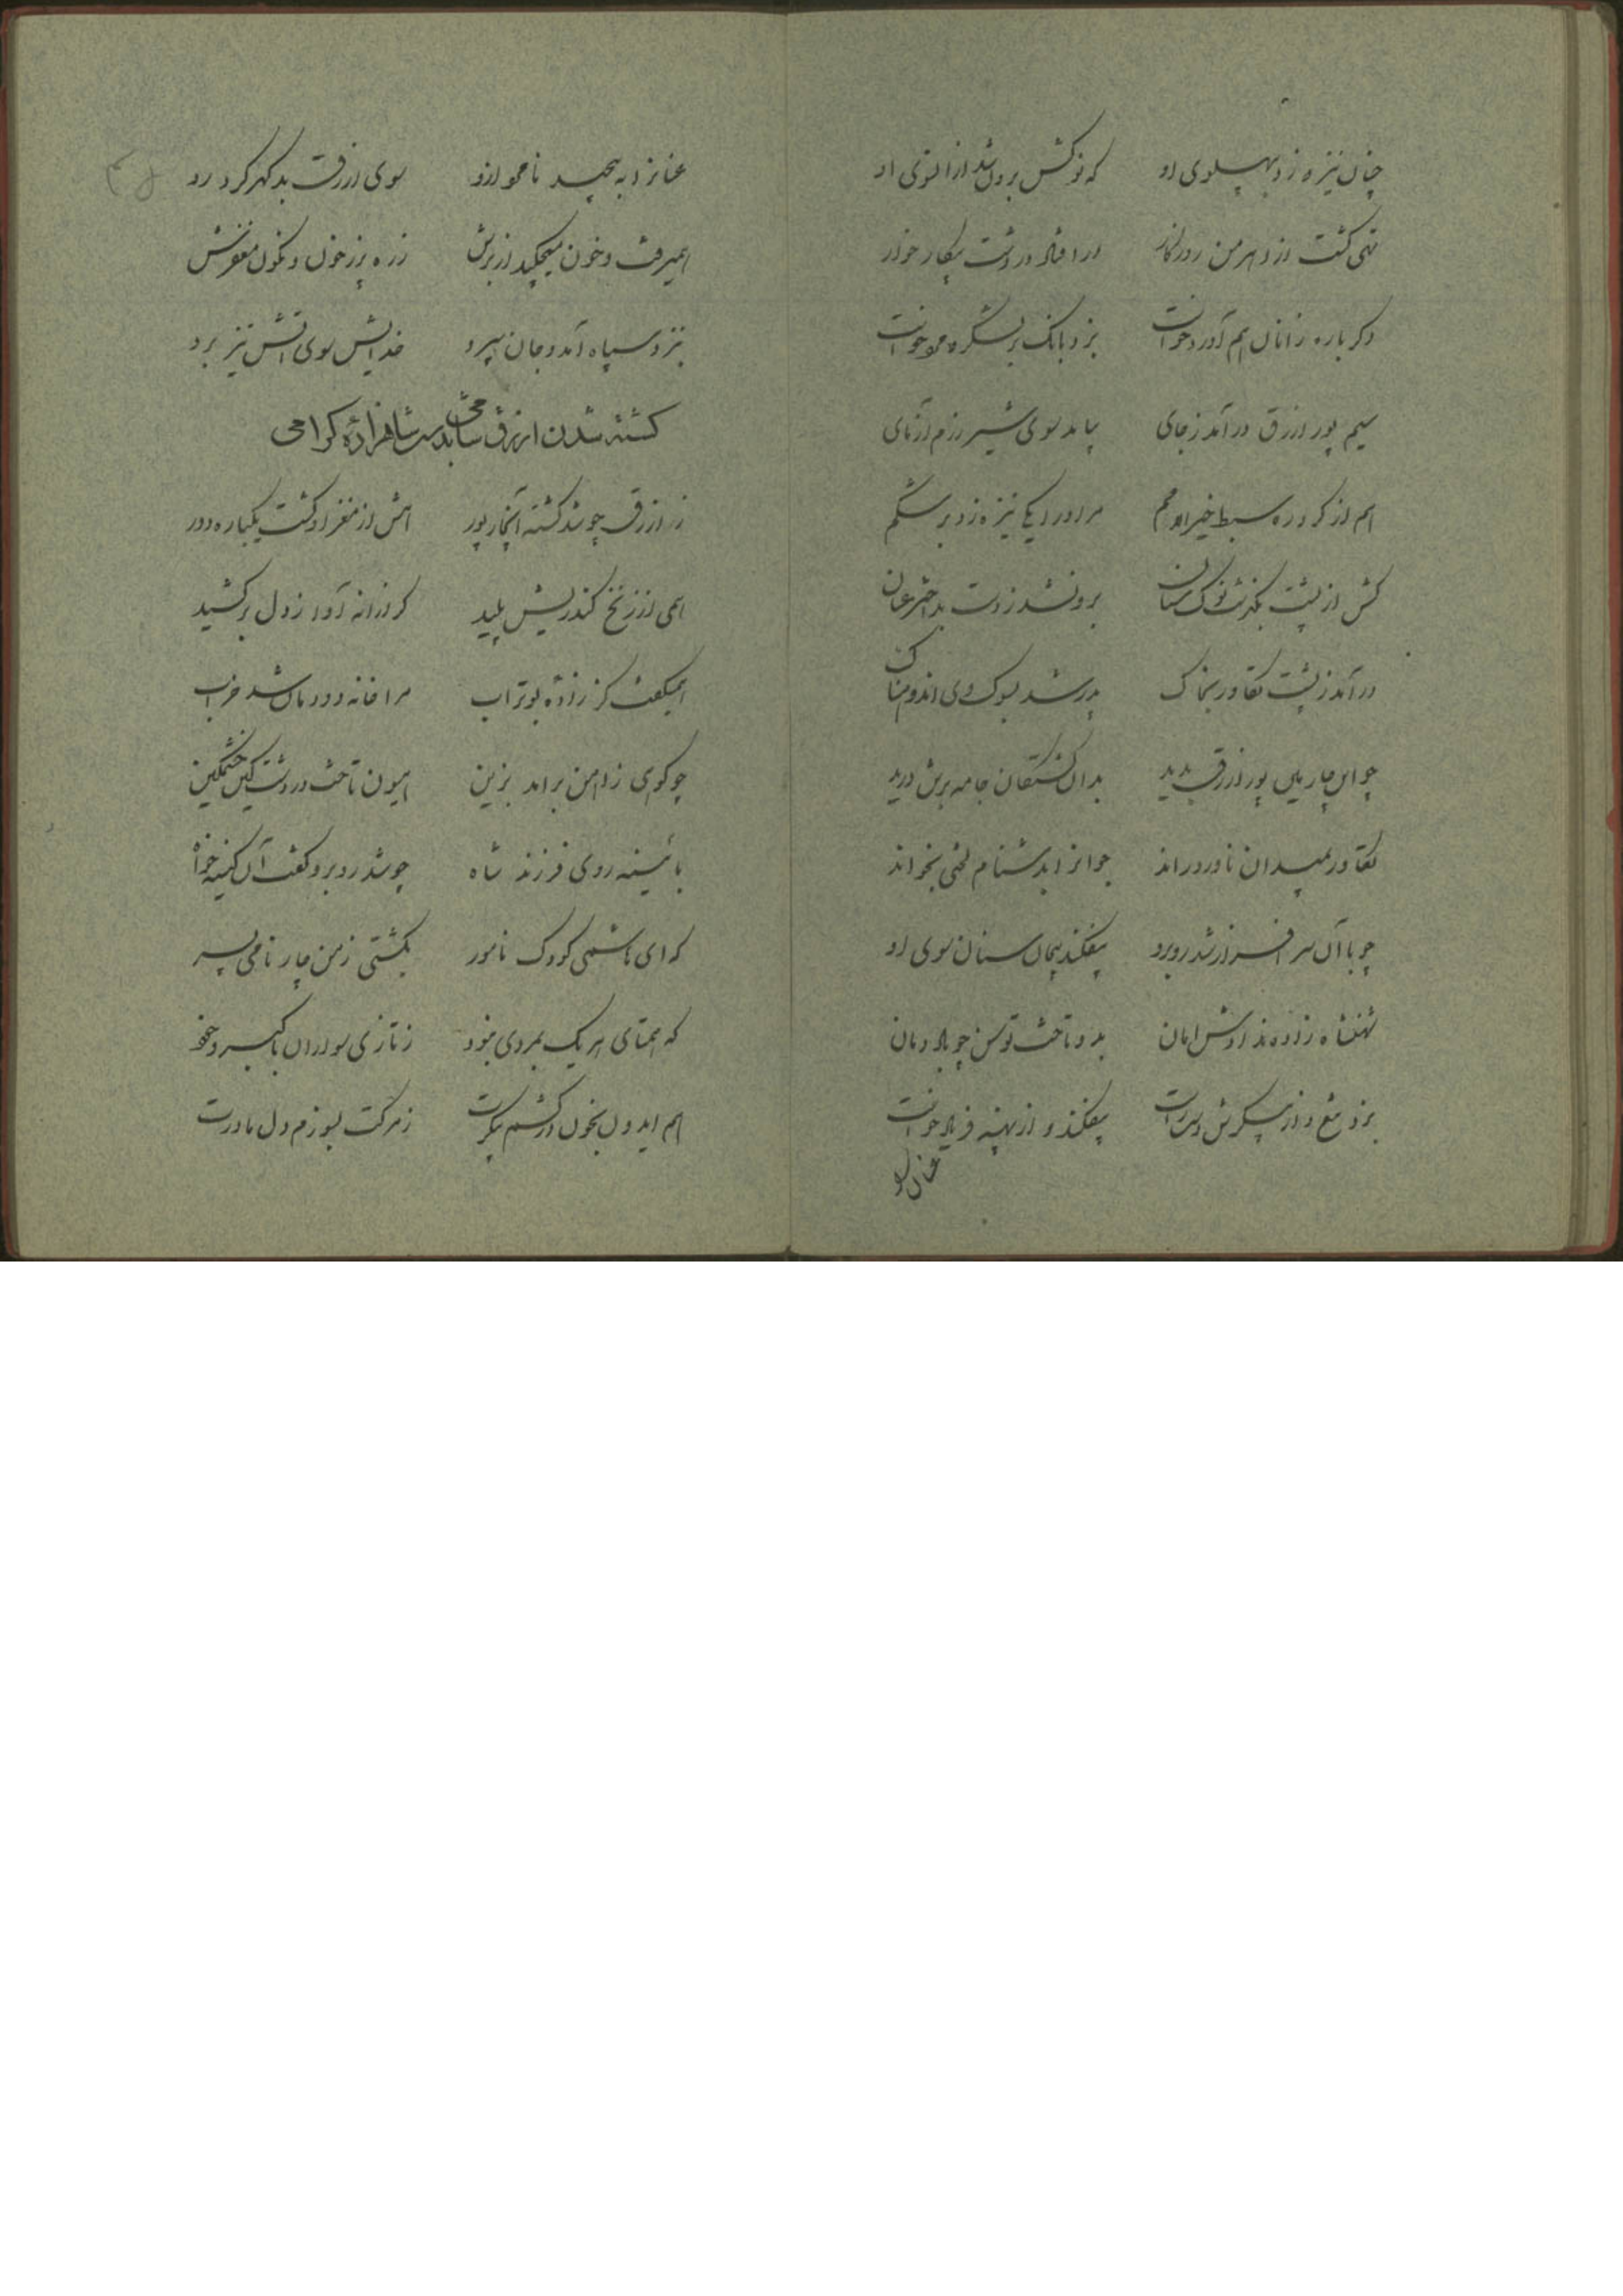 چنان نیزه زد بپهلوی او که نوکش برون شد از آنسوی او
تهی گشت از اهرمن روزگار درافتاد در دشت پیکار خوار
دگر باره زانان هم آورد خواست بزد بانگ بر لشگر
سیم پور ازرق درآمد ز جای بیامد سوی شیر رزم آزمای
هم از گرد ره سبط خیرالامم مر او را یکی نیزه زد بر شکم
کش از پشت بگذشت نوک سنان برون شد ز دست بد اختر عنان
درآمد ز پشت تکاور بخاک پدر شد بسوک وی اندوهناک
چو این چارمی پور ازرق بدید بدان کشتگان جامه برش درید
تکاور بمیدان ناورد راند جوانرا بدشنام لختی بخواند
چو با آن سر افراز شد روبرو بیفکند پیچان سنان سوی او
شهنشاه زاده ندادش امان بدو تاخت توسن چو باد دمان
بزد تیغ و از پیکرش دست راست بیفکند و از بهنه فریاد خواست
عنان
عنانرا به پیچید نامور ازو سوی ازرق بدگهر کرد رو
همیرفت و خون میچکید از برش زره پر ز خون و نگون مغفرش
بنزد سپاه آمد و جان سپرد خدایش سوی آتش تیز برد
کشته شدن ازرق شامی بدست شاهزاده گرامی
ز ازرق چو شد کشته آنچار پور هش از مغز او گشت یکباره دور
همی از زنخ کند ریش پلید گرازانه آوا ز دل برکشید
همیگفت کز زاده بوتراب مرا خانه و دودمان شد خراب
چو کوهی ز آهن برآمد بزین هیون تاخت در دشت کین خشمگین
باستاد روی فرزند شاه چو شد روبرو گفت آن کینه خواه
که ای هاشمی کودک نامور بکشتی ز من چار نامی پسر
که همتای هر یک بمردی نبود ز تازی سواران با گبر و خود
هم ایدون بخون درکشم پیکرت ز مرگت بسوزم دل مادرت